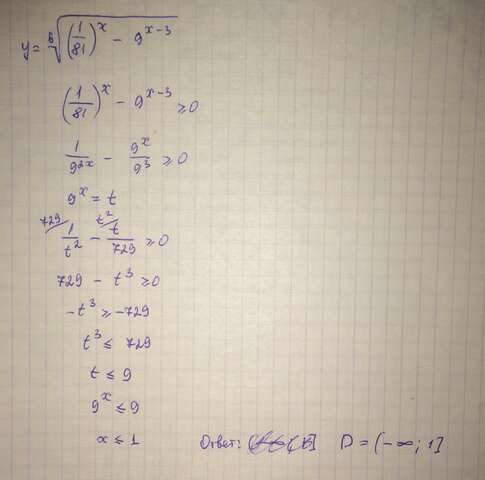 y = ⁶√((1/81)^x − 9^(x−3))
(1/81)^x − 9^(x−3) ≥ 0
1/9^(2x) − 9^x/9^3 ≥ 0
9^x = t
729/ 1/t² − t²/ t/729 ≥ 0
729 − t³ ≥ 0
−t³ ≥ −729
t³ ≤ 729
t ≤ 9
9^x ≤ 9
x ≤ 1
Ответ: D = (−∞; 1]